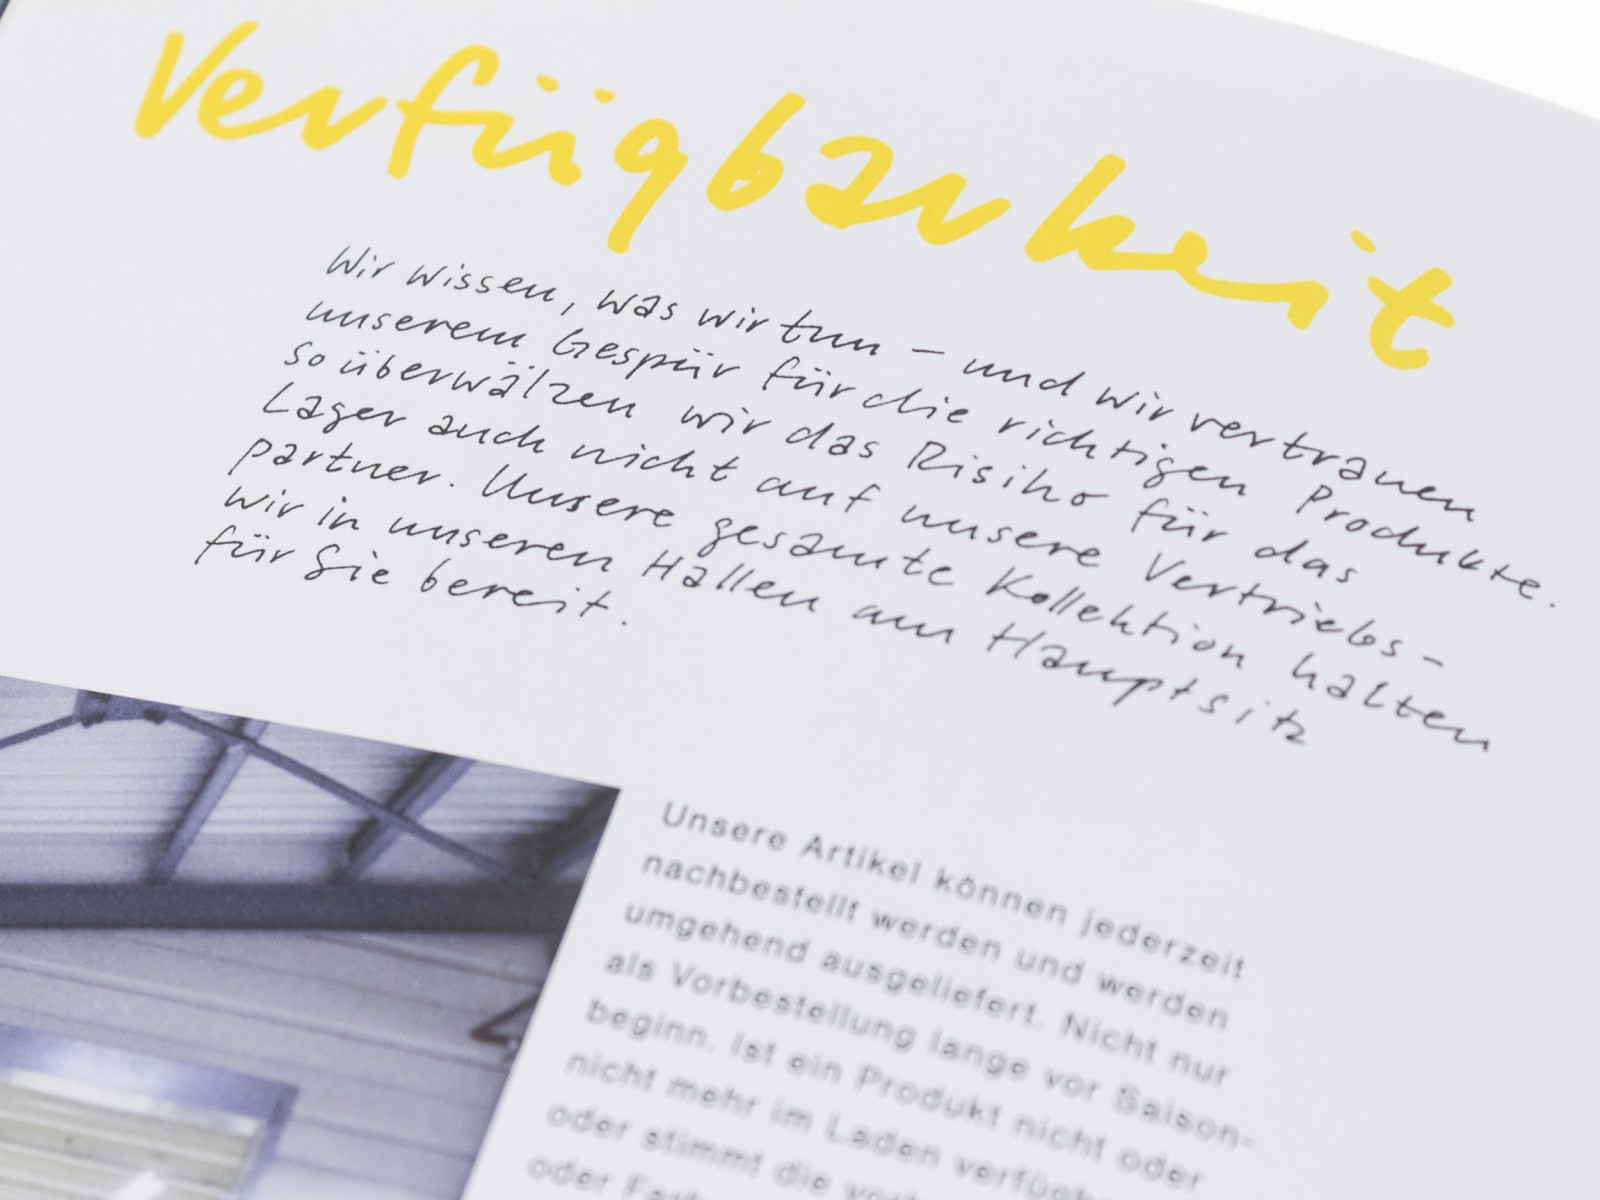 Verfügbarkeit
Wir wissen, was wir tun – und wir vertrauen
unserem Gespür für die richtigen Produkte.
so überwälzen wir das Risiko für das
Lager auch nicht auf unsere Vertriebs-
partner. Unsere gesamte Kollektion halten
wir in unseren Hallen am Hauptsitz
für Sie bereit.
Unsere Artikel können jederzeit
nachbestellt werden und werden
umgehend ausgeliefert. Nicht nur
als Vorbestellung lange vor Saison-
beginn. Ist ein Produkt nicht oder
nicht mehr im Laden
oder stimmt die
oder